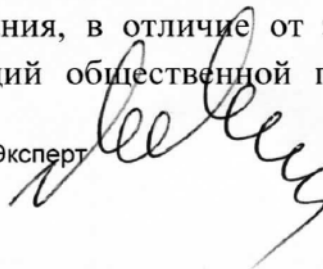 ания, в отличие от
ций общественной п
Эксперт